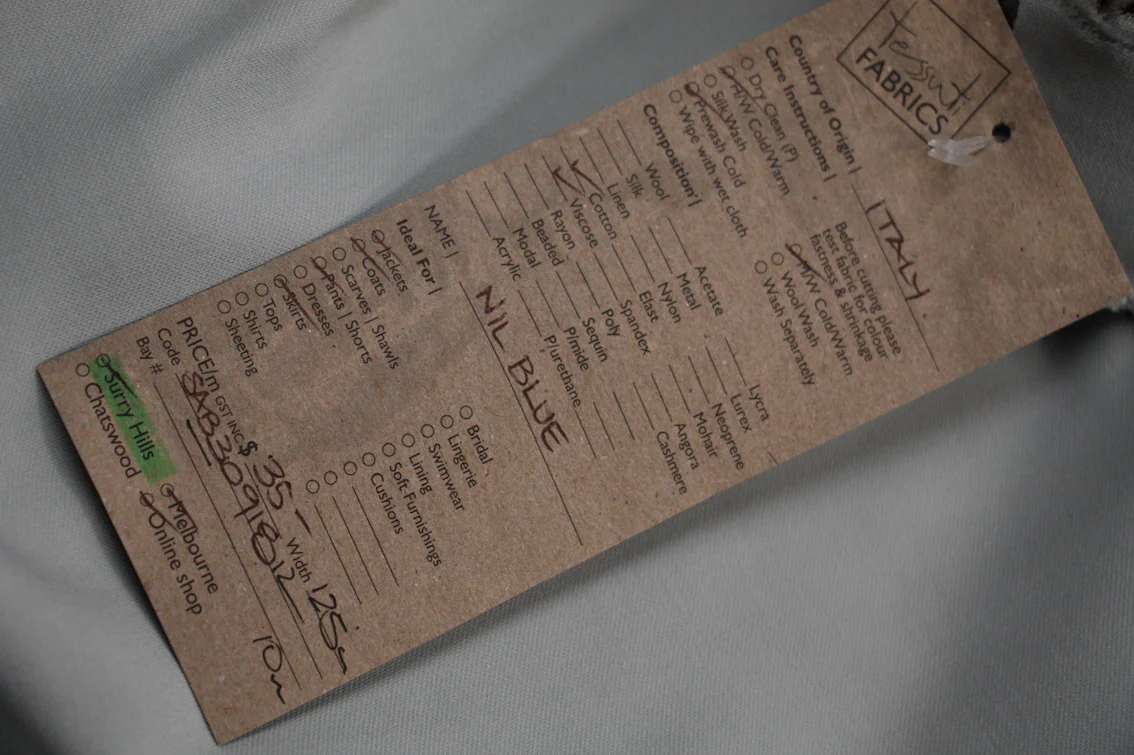 Tessuti
FABRICS
Country of Origin | ITALY
Care Instructions |
Dry Clean (P)
H/W Cold/Warm
Silk Wash
Prewash Cold
Wipe with wet cloth
Before cutting please
test fabric for colour
fastness & shrinkage
H/W Cold/Warm
Wool Wash
Wash Separately
Composition |
Wool
Silk
Linen
Cotton
Viscose
Rayon
Beaded
Modal
Acrylic
Acetate
Metal
Nylon
Elast
Spandex
Poly
Sequin
P/mide
P/urethane
Lycra
Lurex
Neoprene
Mohair
Angora
Cashmere
NAME | NIL BLUE
Ideal For |
Jackets
Coats
Scarves | Shawls
Pants | Shorts
Dresses
Skirts
Tops
Shirts
Sheeting
Bridal
Lingerie
Swimwear
Lining
Soft Furnishings
Cushions
PRICE/m GST INC $ 35 – Width 125cm
Code SAB230918012
Bay # 10m
Surry Hills Melbourne
Chatswood Online shop